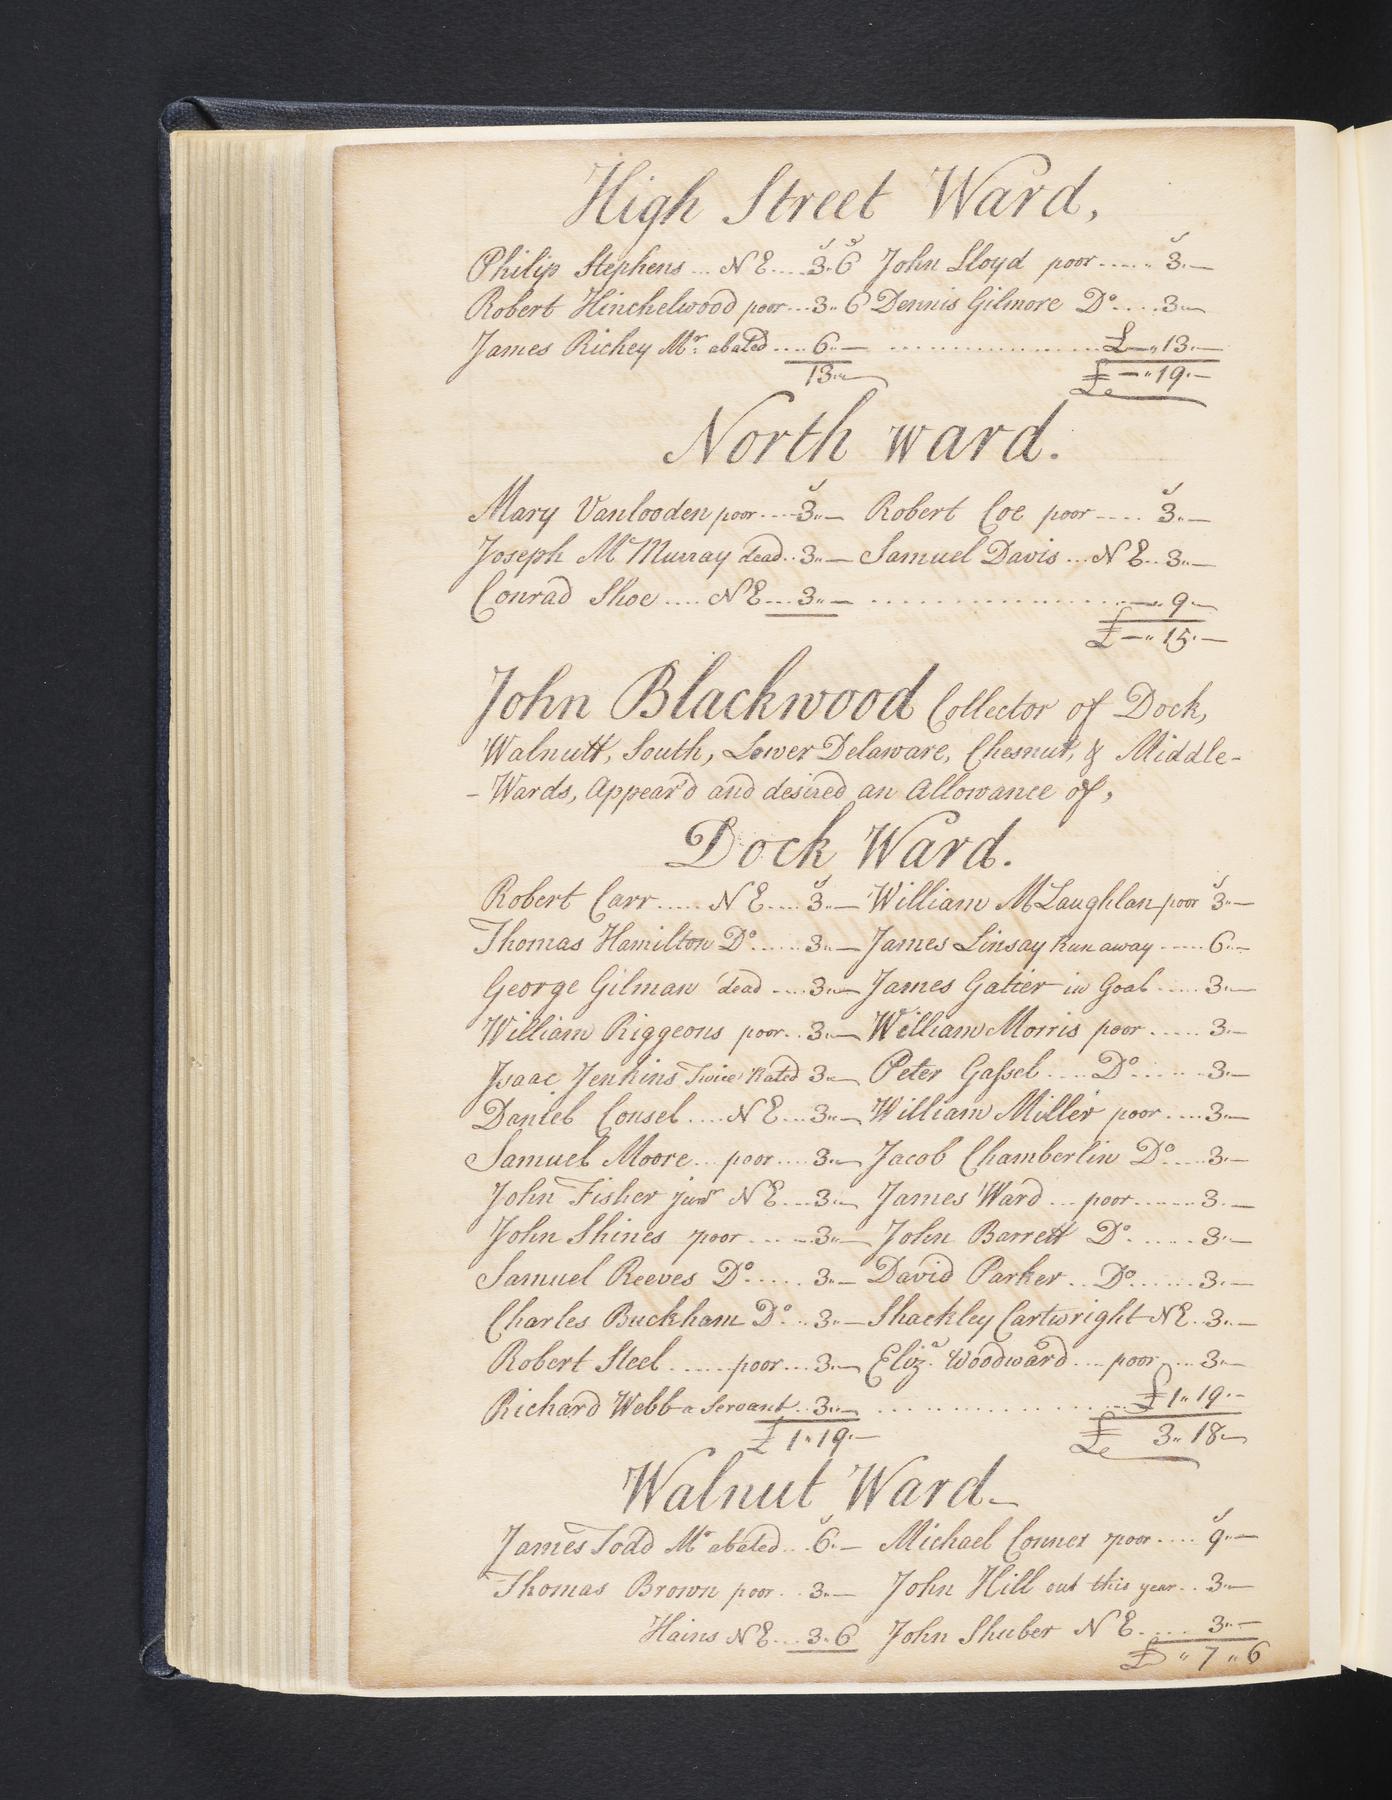 High Street Ward,
Philip Stephens ... N E .... 3.. 6 John Lloyd poor ...... 3..—
Robert Hinchelwood poor ... 3.. 6 Dennis Gilmore Do .... 3..—
James Richey Mr. abated .... 6..— .................. £—.. 13..—
13..— £ —.. 19..—
North ward.
Mary Vanlooden poor .... 3..— Robert Coe poor .... 3..—
Joseph McMurray dead .. 3..— Samuel Davis ... N E .. 3..—
Conrad Shoe .... N E ... 3..— .................. —.. 9..—
£ —.. 15..—
John Blackwood Collector of Dock,
Walnutt, South, Lower Delaware, Chesnut, & Middle-
- Wards, Appear'd and desired an Allowance of,
Dock Ward.
Robert Carr ..... N E .... 3..— William McLaughlan poor 3..—
Thomas Hamilton Do ..... 3..— James Linsay Run away ...... 6..—
George Gilman dead .... 3..— James Gatier in Goal ..... 3..—
William Riggeons poor .. 3..— William Morris poor ..... 3..—
Isaac Jenkins Twice Rated 3..— Peter Gassel .... Do ...... 3..—
Daniel Consel .... N E ... 3..— William Miller poor .... 3..—
Samuel Moore ... poor .... 3..— Jacob Chamberlin Do .... 3..—
John Fisher junr N E ... 3..— James Ward ... poor ...... 3..—
John Shines poor ..... 3..— John Barrett Do. ..... 3..—
Samuel Reeves Do ..... 3..— David Parker .. Do ...... 3..—
Charles Buckham Do .. 3..— Shackley Cartwright N E .. 3..—
Robert Steel ...... poor ... 3..— Eliza. Woodward .... poor .... 3..—
Richard Webb a Servant .. 3..— .................. £ 1.. 19..—
£ 1.. 19..— £ 3.. 18..—
Walnut Ward—
James Todd Mr abated ... 6..— Michael Conner poor .... 9..—
Thomas Brown poor .. 3..— John Hill out this year .. 3..—
Hains N E ... 3.. 6 John Shuber N E ..... 3..—
£ " 7 " 6